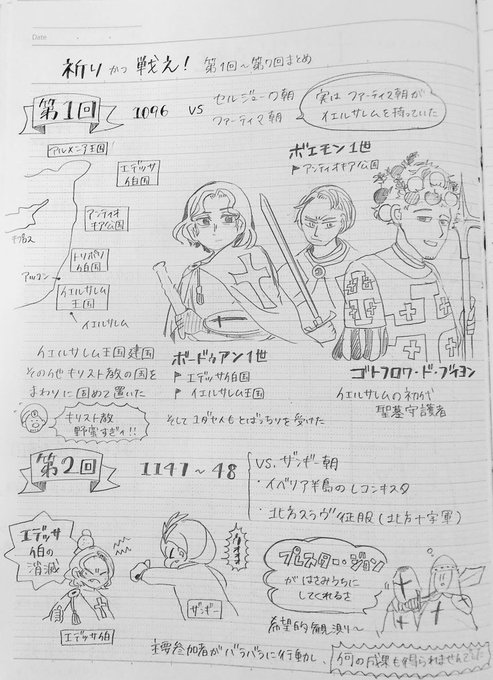 Date
祈りかつ戦え! 第1回~第7回まとめ
第1回 1096 VS セルジューク朝
ファーティマ朝
実はファーティマ朝が
イェルサレムを持っていた
アルメニア王国
エデッサ
伯国
アンティオ
キア公国
トリポリ
伯国
キプロス
アッコン
イェルサレム
王国
イェルサレム
ボエモン1世
アンティオキア公国
ボードゥアン1世
エデッサ伯国
イェルサレム王国
ゴドフロワ・ド・ブイヨン
イェルサレムの初代
聖墓守護者
イェルサレム王国建国
その他キリスト教の国を
まわりに固めて置いた
キリスト教
野蛮すぎィ!!
そしてユダヤ人もとばっちりを受けた
第2回 1147~48
VS. ザンギー朝
・イベリア半島のレコンキスタ
・北方スラヴ征服(北方十字軍)
エデッサ
伯の
消滅
エデッサ伯
ザンギー
プレスター・ジョン
がはさみうちに
してくれるさ
希望的観測り~
主要参加者がバラバラに行動し、何の成果も得られませんでした